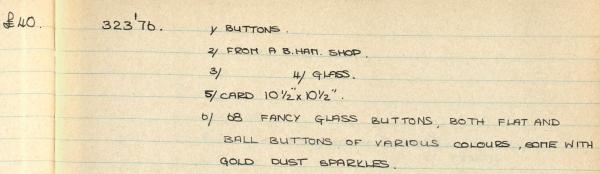 £40. 323'76. 1/ BUTTONS.
2/ FROM A B.HAM. SHOP.
3/ 4/ GLASS.
5/ CARD 10½" x 10½".
6/ 68 FANCY GLASS BUTTONS, BOTH FLAT AND
BALL BUTTONS OF VARIOUS COLOURS, SOME WITH
GOLD DUST SPARKLES.